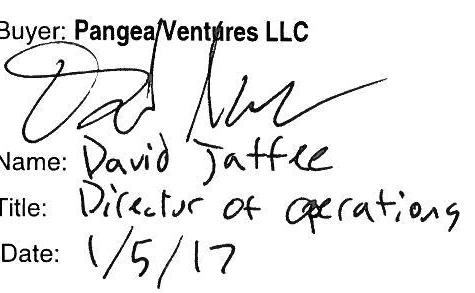 Buyer: Pangea Ventures LLC
Name: David Jaffee
Title: Director of operations
Date: 1/5/17